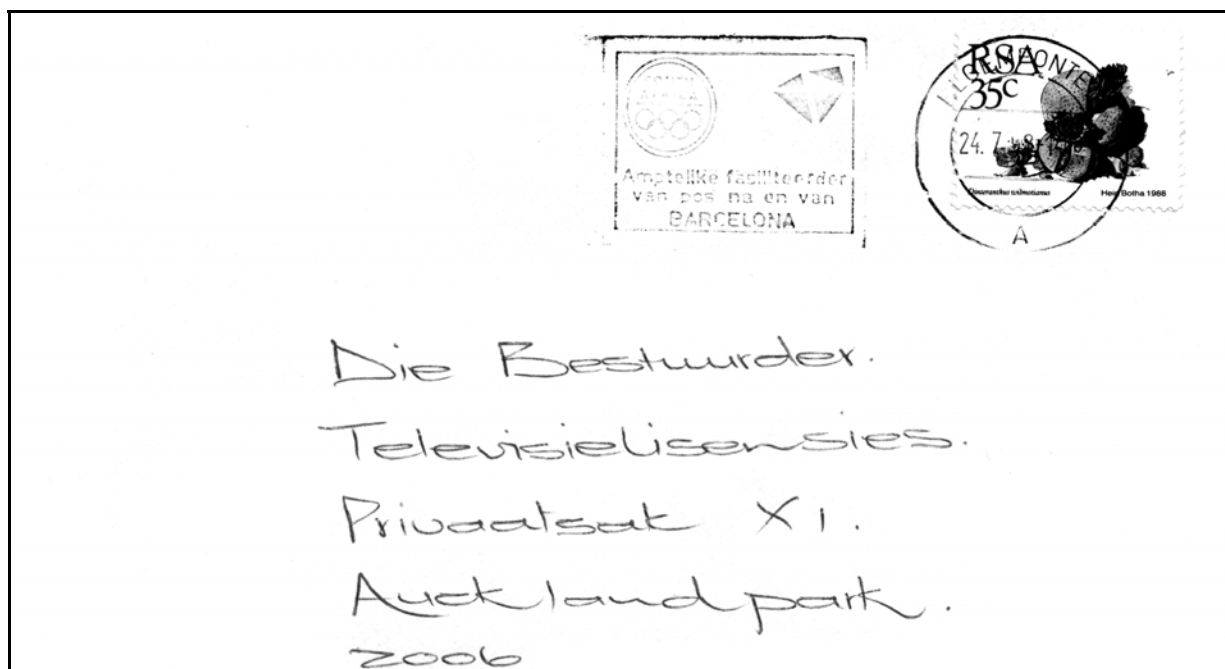 SOUTH
AFRICA
Amptelike fasiliteerder
van pos na en van
BARCELONA
RSA
35c
24. 7
Hein Botha 1988
A
Die Bestuurder.
Televisielisensies.
Privaatsak X1.
Aucklandpark.
2006